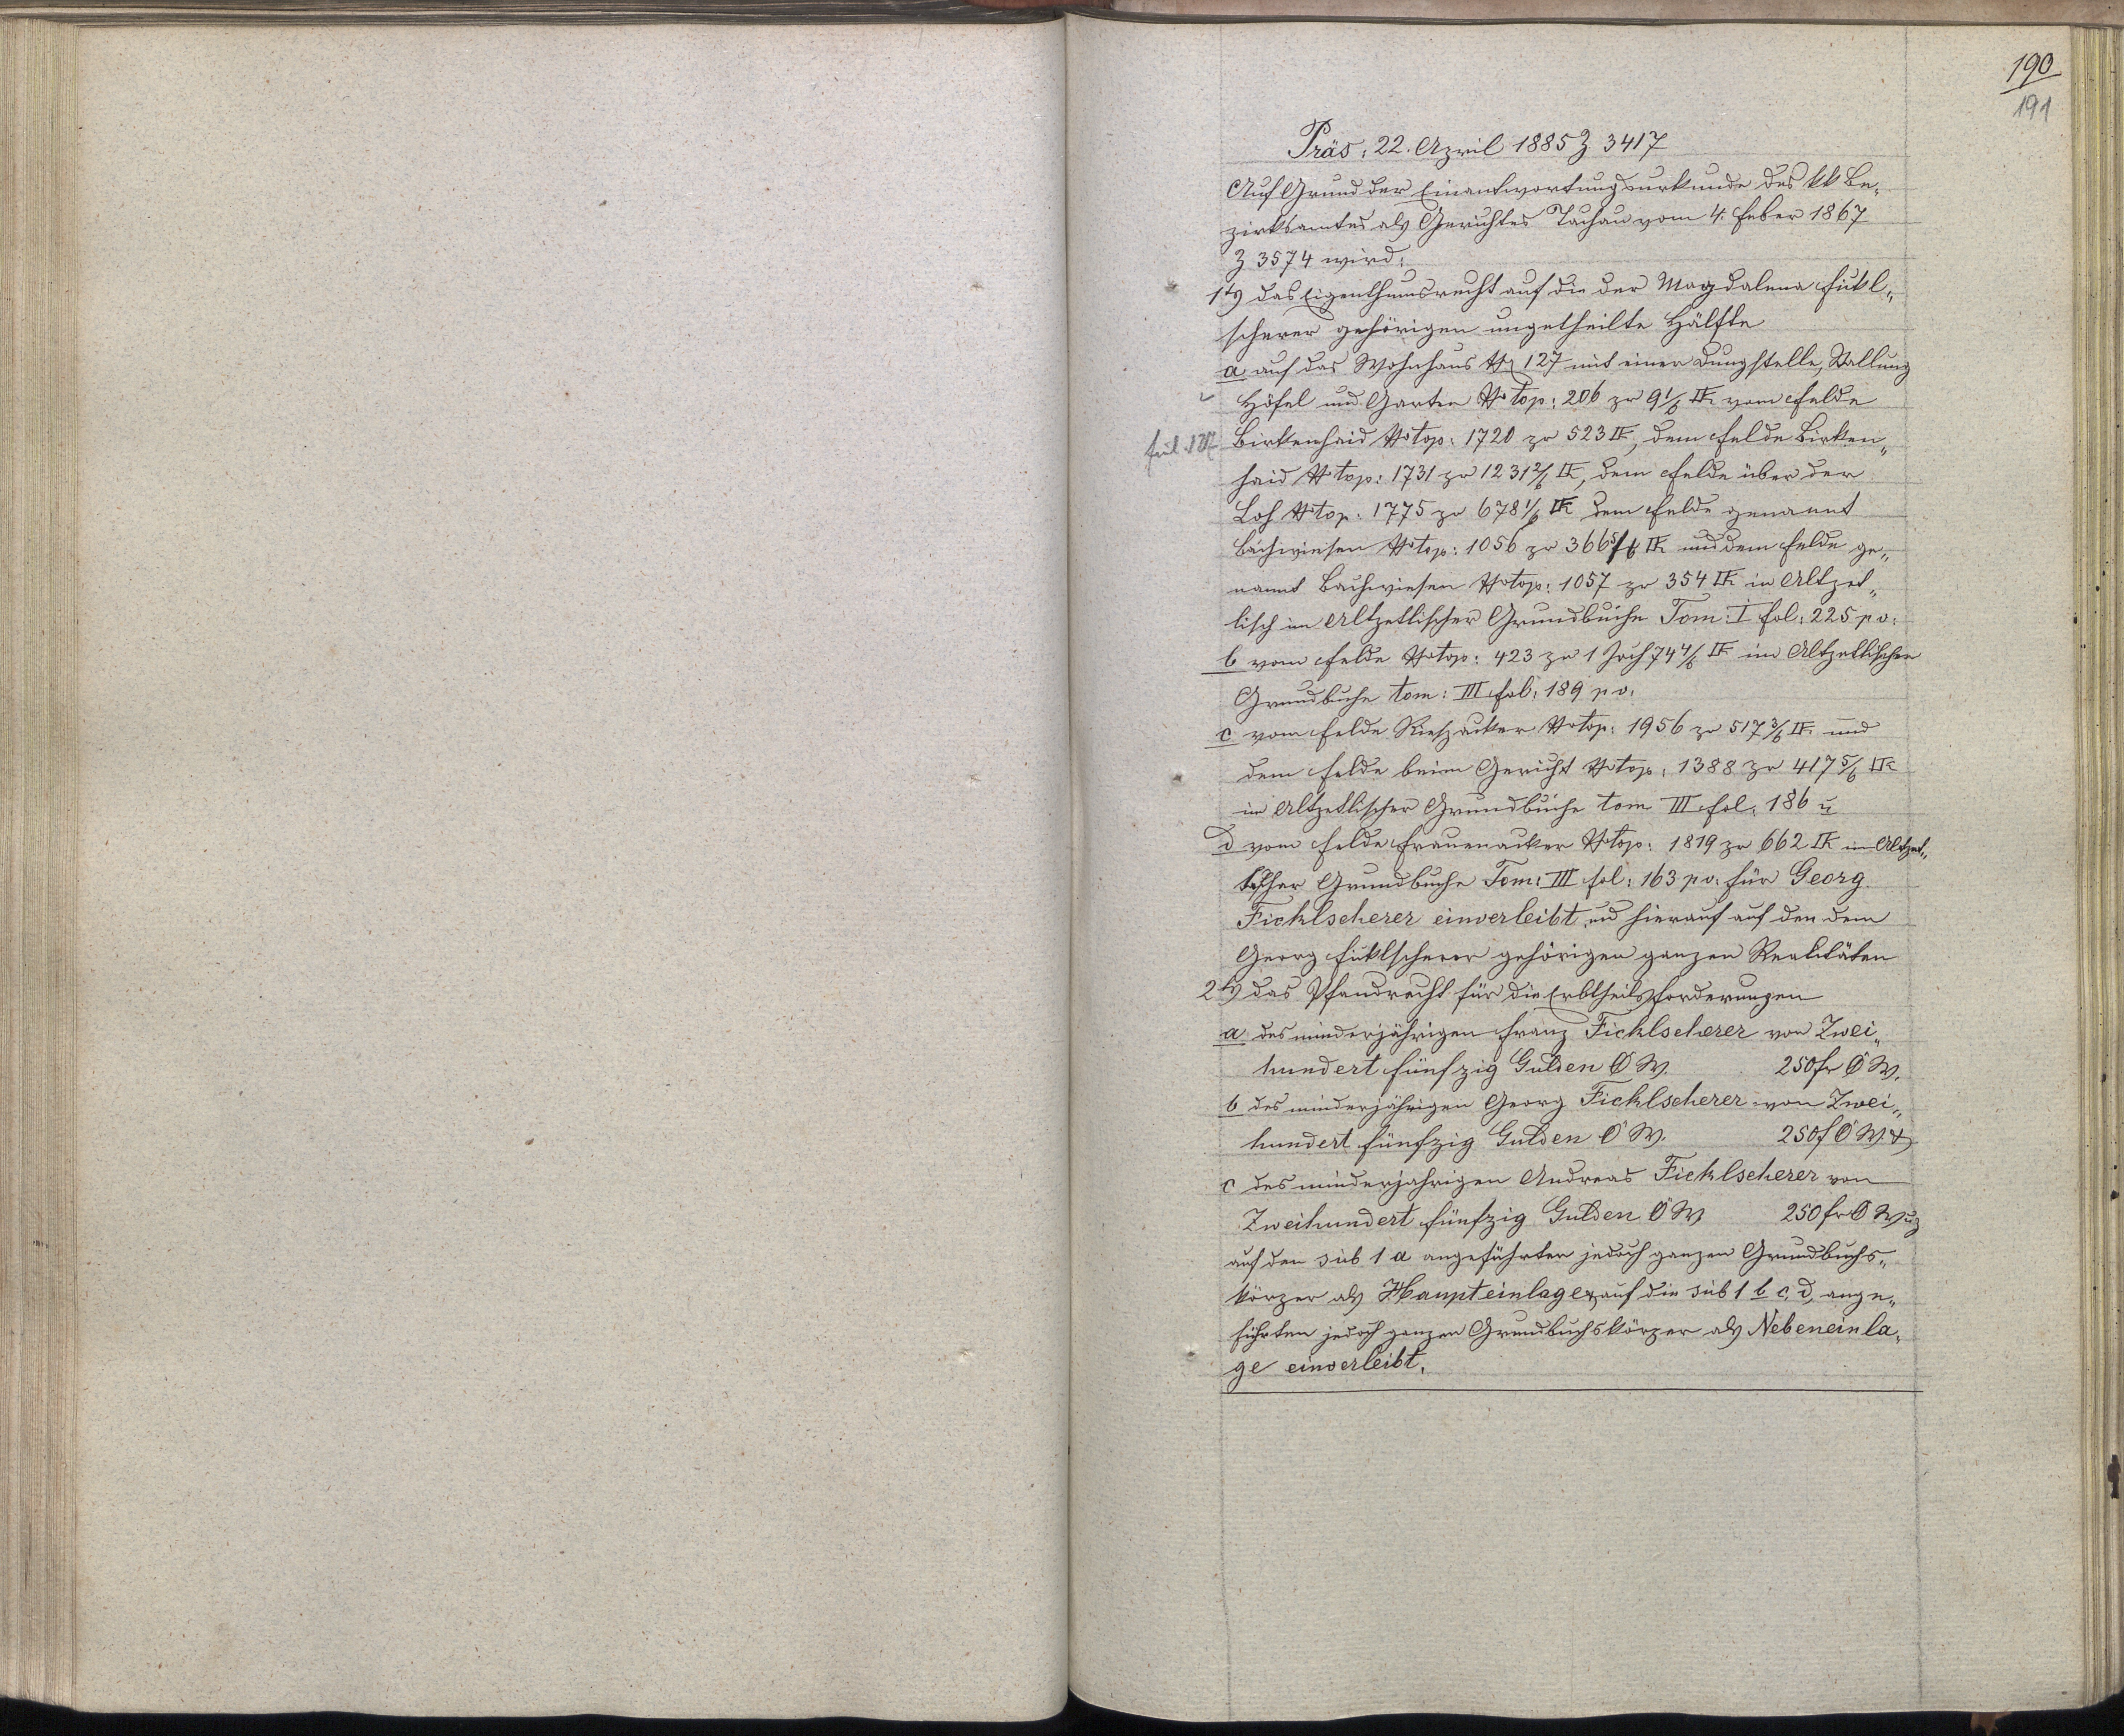 190
191
Präs: 22. April 1885 Z 3417
Auf Grund der Einantwortungsurkunde des kk Be„
zirksamtes als Gerichtes Tachau vom 4. Feber 1867
Z 3574 wird:
1tes das Eigenthumsrecht auf die der Magdalena Fickl„
scherer gehörigen ungetheilte Hälfte
a auf das Wohnhaus № 127 mit einer Dungstelle, Stallung
Höfel und Garten № top: 206 zu 9 1/6 □K. vom Felde
Birkenhaid № top: 1720 zu 523 □K, dem Felde Birken„
haid № top: 1731 zu 1231 2/6 □K, dem Felde über der
Loh № top: 1775 zu 678 1/6 □K dem Felde genannt
Bachwiesen № top: 1056 zu 366 5/6 □K und dem Felde ge„
nannt Bachwiesen № top: 1057 zu 354 □K in Altzet„
lisch im Altzetlischer Grundbuche Tom: I fol: 225 po:
b vom Felde № top: 423 zu 1 Joch 74 4/6 □K im Altzetlischer
Grundbuche tom: III fol: 189 po.
c vom Felde № top: 1956 zu 517 3/6 □K. und
dem Felde beim Gericht № top: 1388 zu 417 5/6 □K
im Altzetlischer Grundbuche tom III fol: 186 u
d vom Felde Frauenacker № top: 1819 zu 662 □K im Altzet„
lischer Grundbuche Tom: III fol: 163 po. für Georg
Ficklscherer einverleibt und hierauf auf den dem
Georg Ficklscherer gehörigen ganzen Realitäten
2tes das Pfandrecht für die Erbtheilsforderungen
a des minderjährigen Franz Ficklscherer von Zwei„
hundert fünfzig Gulden Ö W. 250 fr Ö W.
b des minderjährigen Georg Ficklscherer von Zwei„
hundert fünfzig Gulden Ö W. 250 f Ö W. &
c des minderjahrigen Andreas Ficklscherer von
Zweihundert fünfzig Gulden Ö W 250 fr Ö W uz
auf den sub 1 a angeführten jedoch ganzen Grundbuchs„
körper als Haupteinlage & auf die sub 1 b c, d, ange„
führten jedoch ganzen Grundbuchskörper als Nebeneinla„
ge einverleibt.